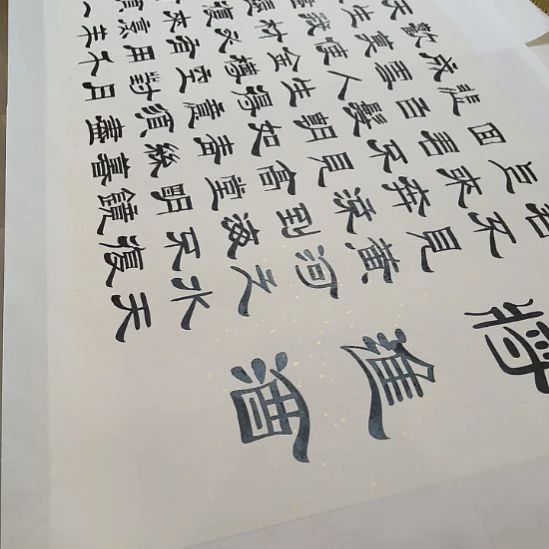 將進酒
君不見黃河之水天
上來奔流到海不復
回君不見高堂明鏡
悲白髮朝如青絲暮
成雪人生得意須盡
歡莫使金樽空對月
天生我材必有用千
復來